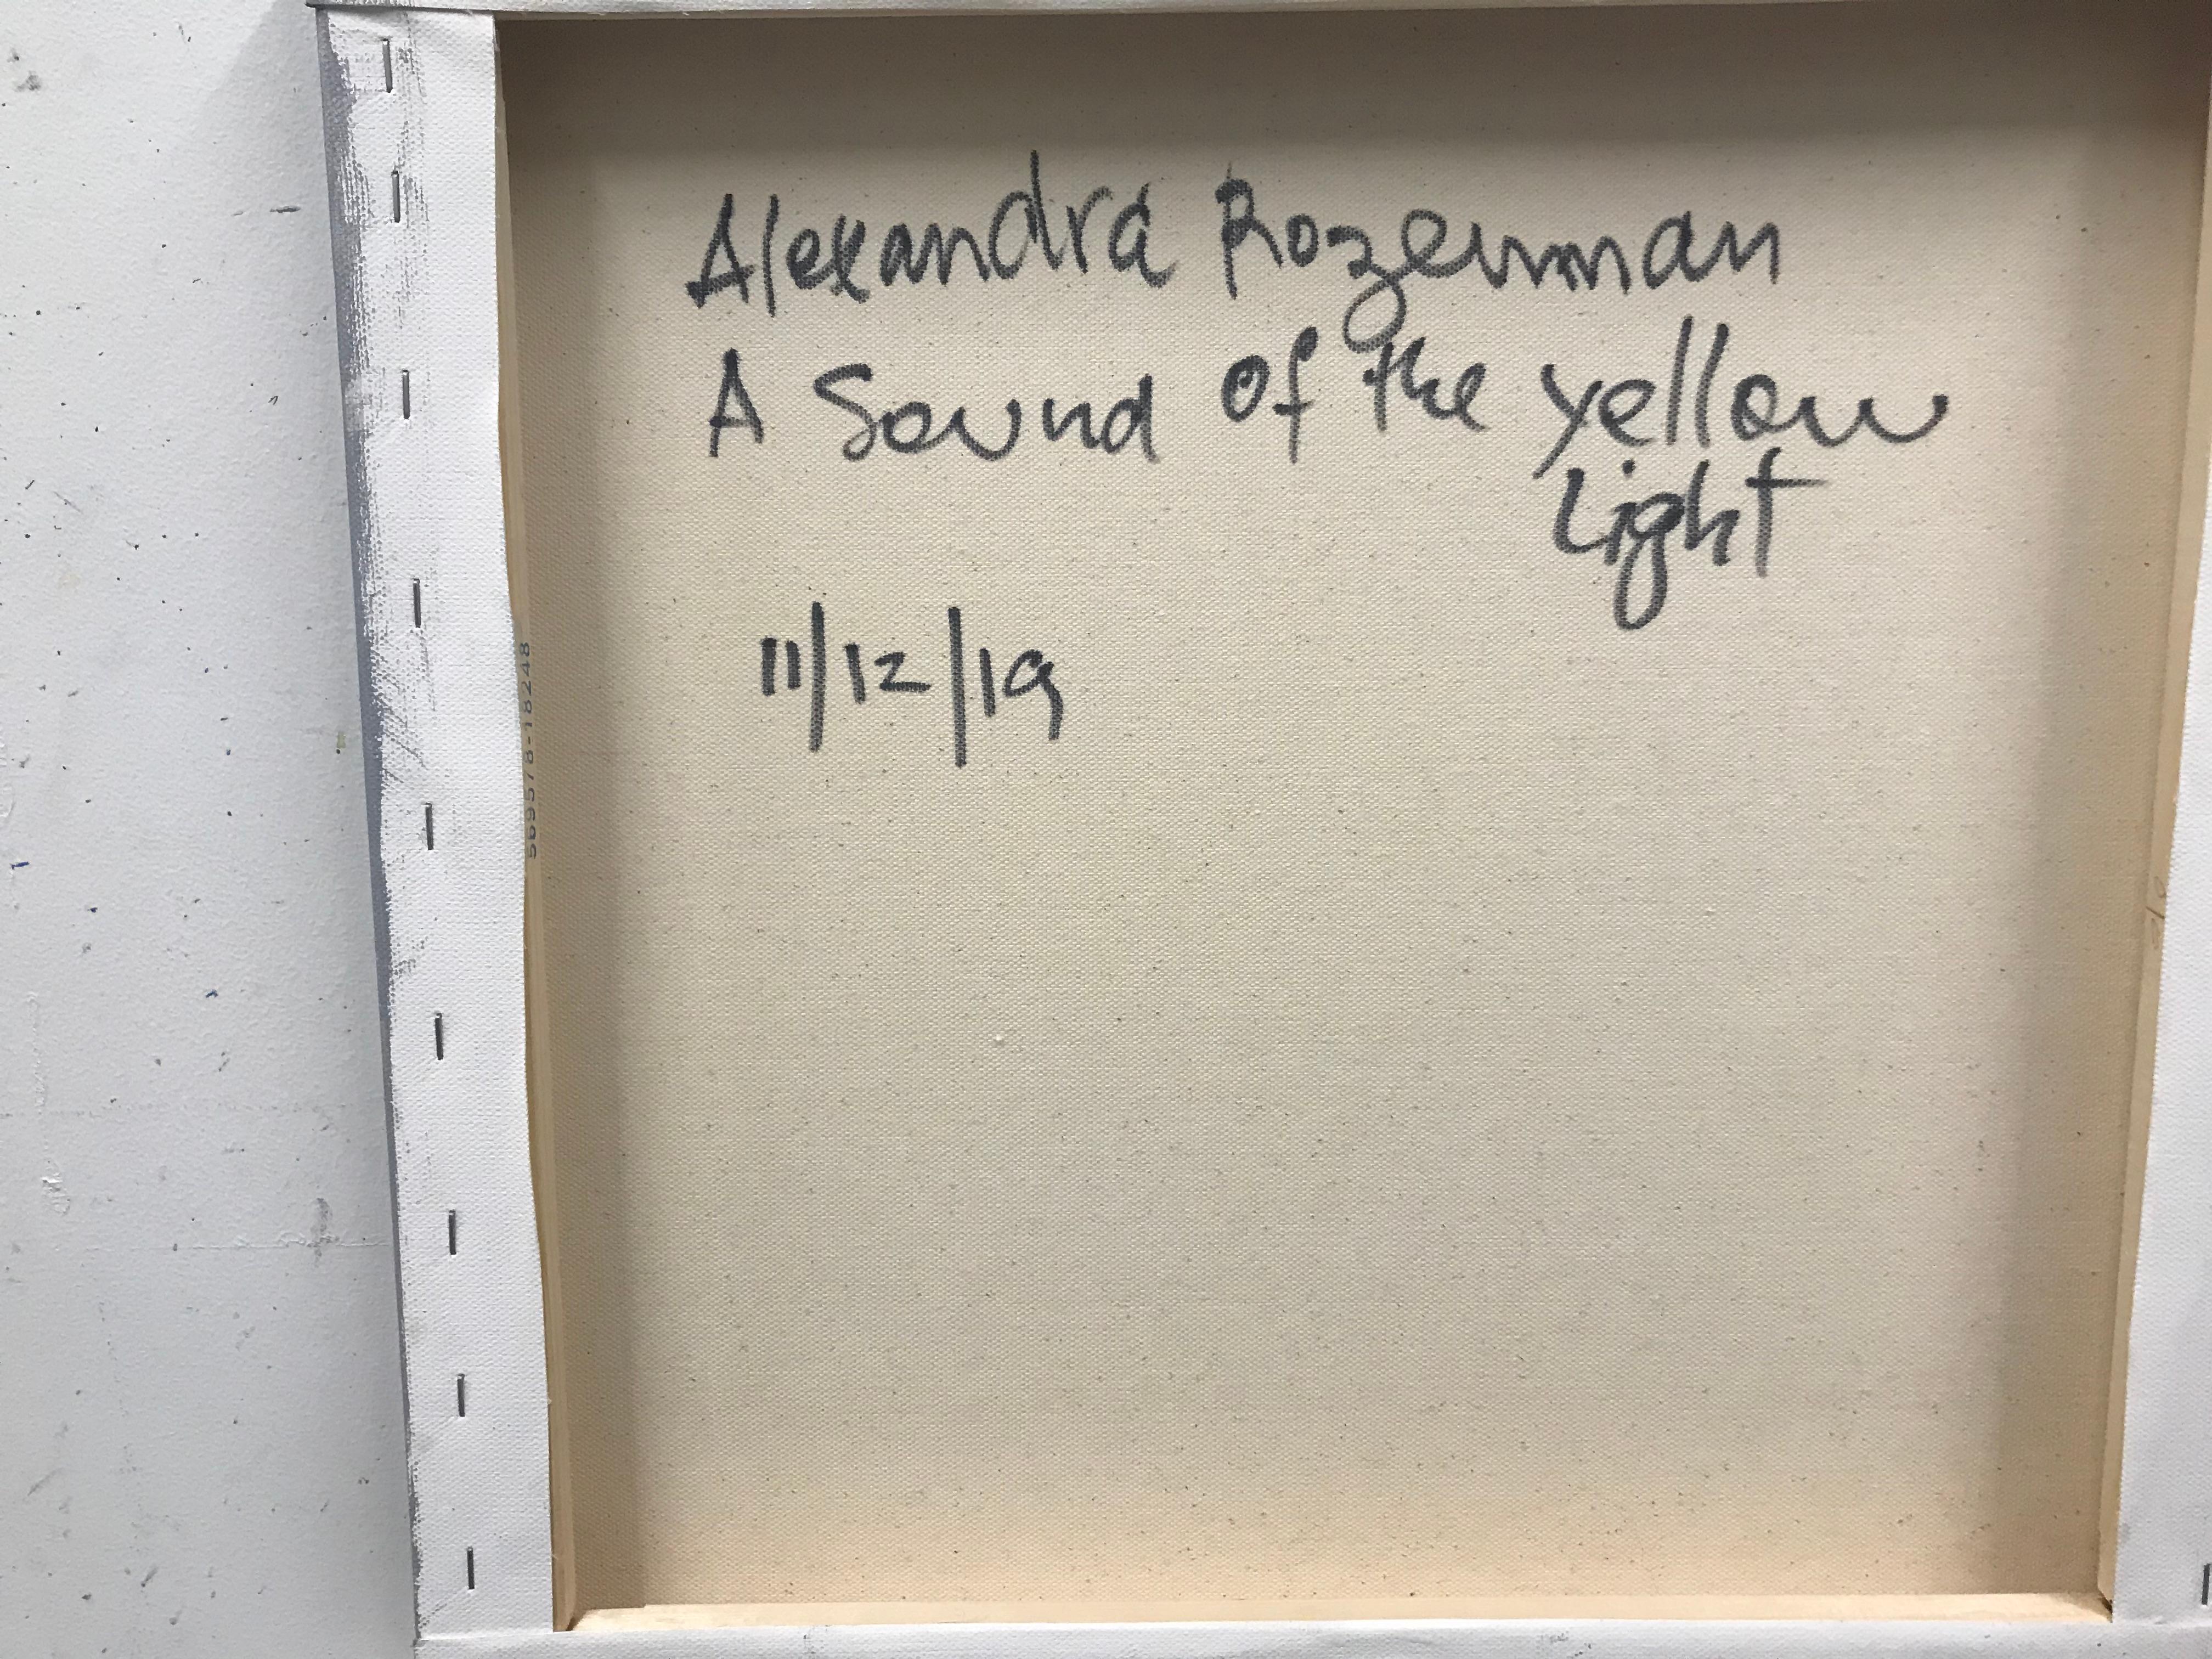 Alexandra Rozenman
A Sound of the Yellow
Light
11/12/19
569578-18248